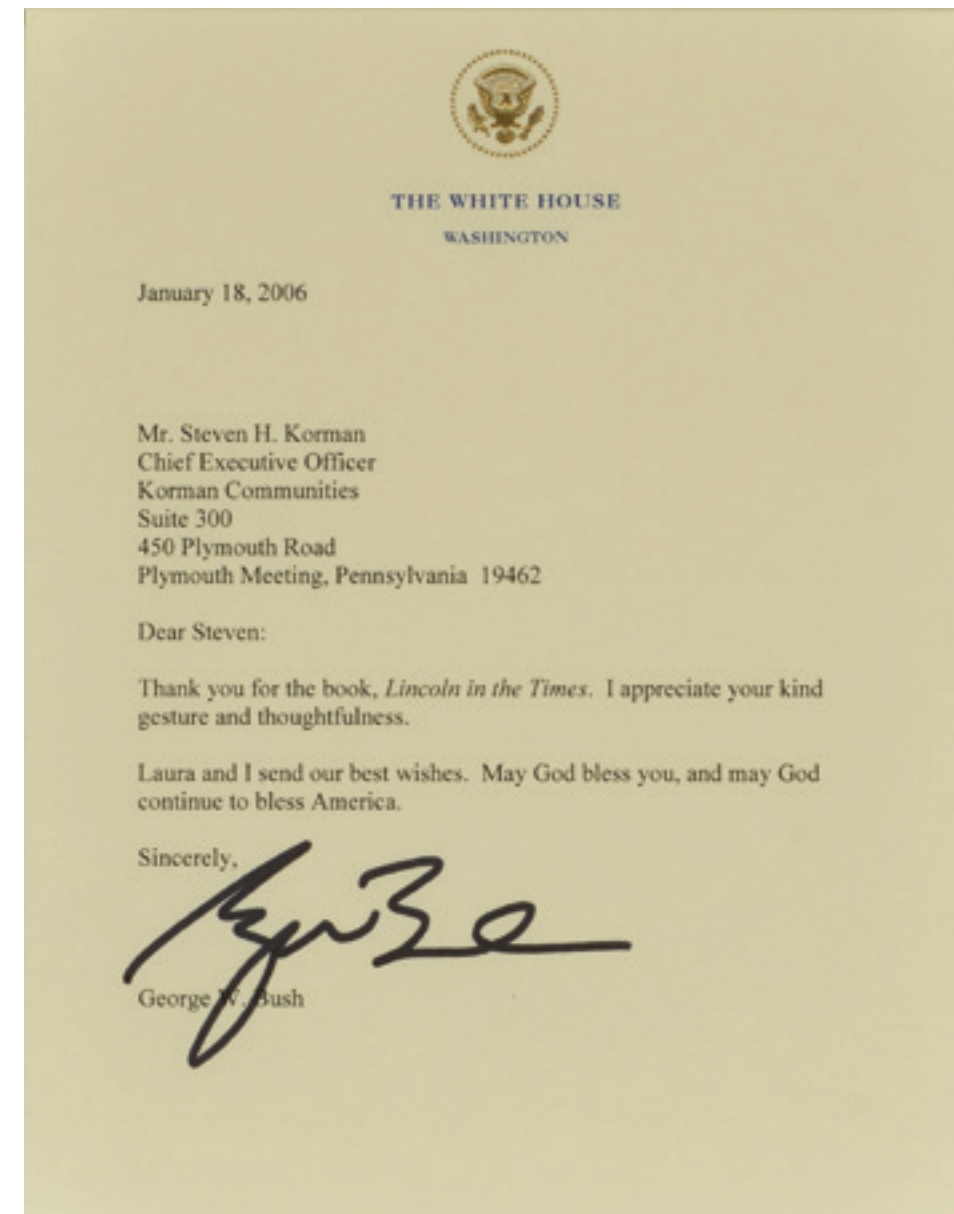 THE WHITE HOUSE
WASHINGTON
January 18, 2006
Mr. Steven H. Korman
Chief Executive Officer
Korman Communities
Suite 300
450 Plymouth Road
Plymouth Meeting, Pennsylvania 19462
Dear Steven:
Thank you for the book, Lincoln in the Times. I appreciate your kind
gesture and thoughtfulness.
Laura and I send our best wishes. May God bless you, and may God
continue to bless America.
Sincerely,
George W. Bush